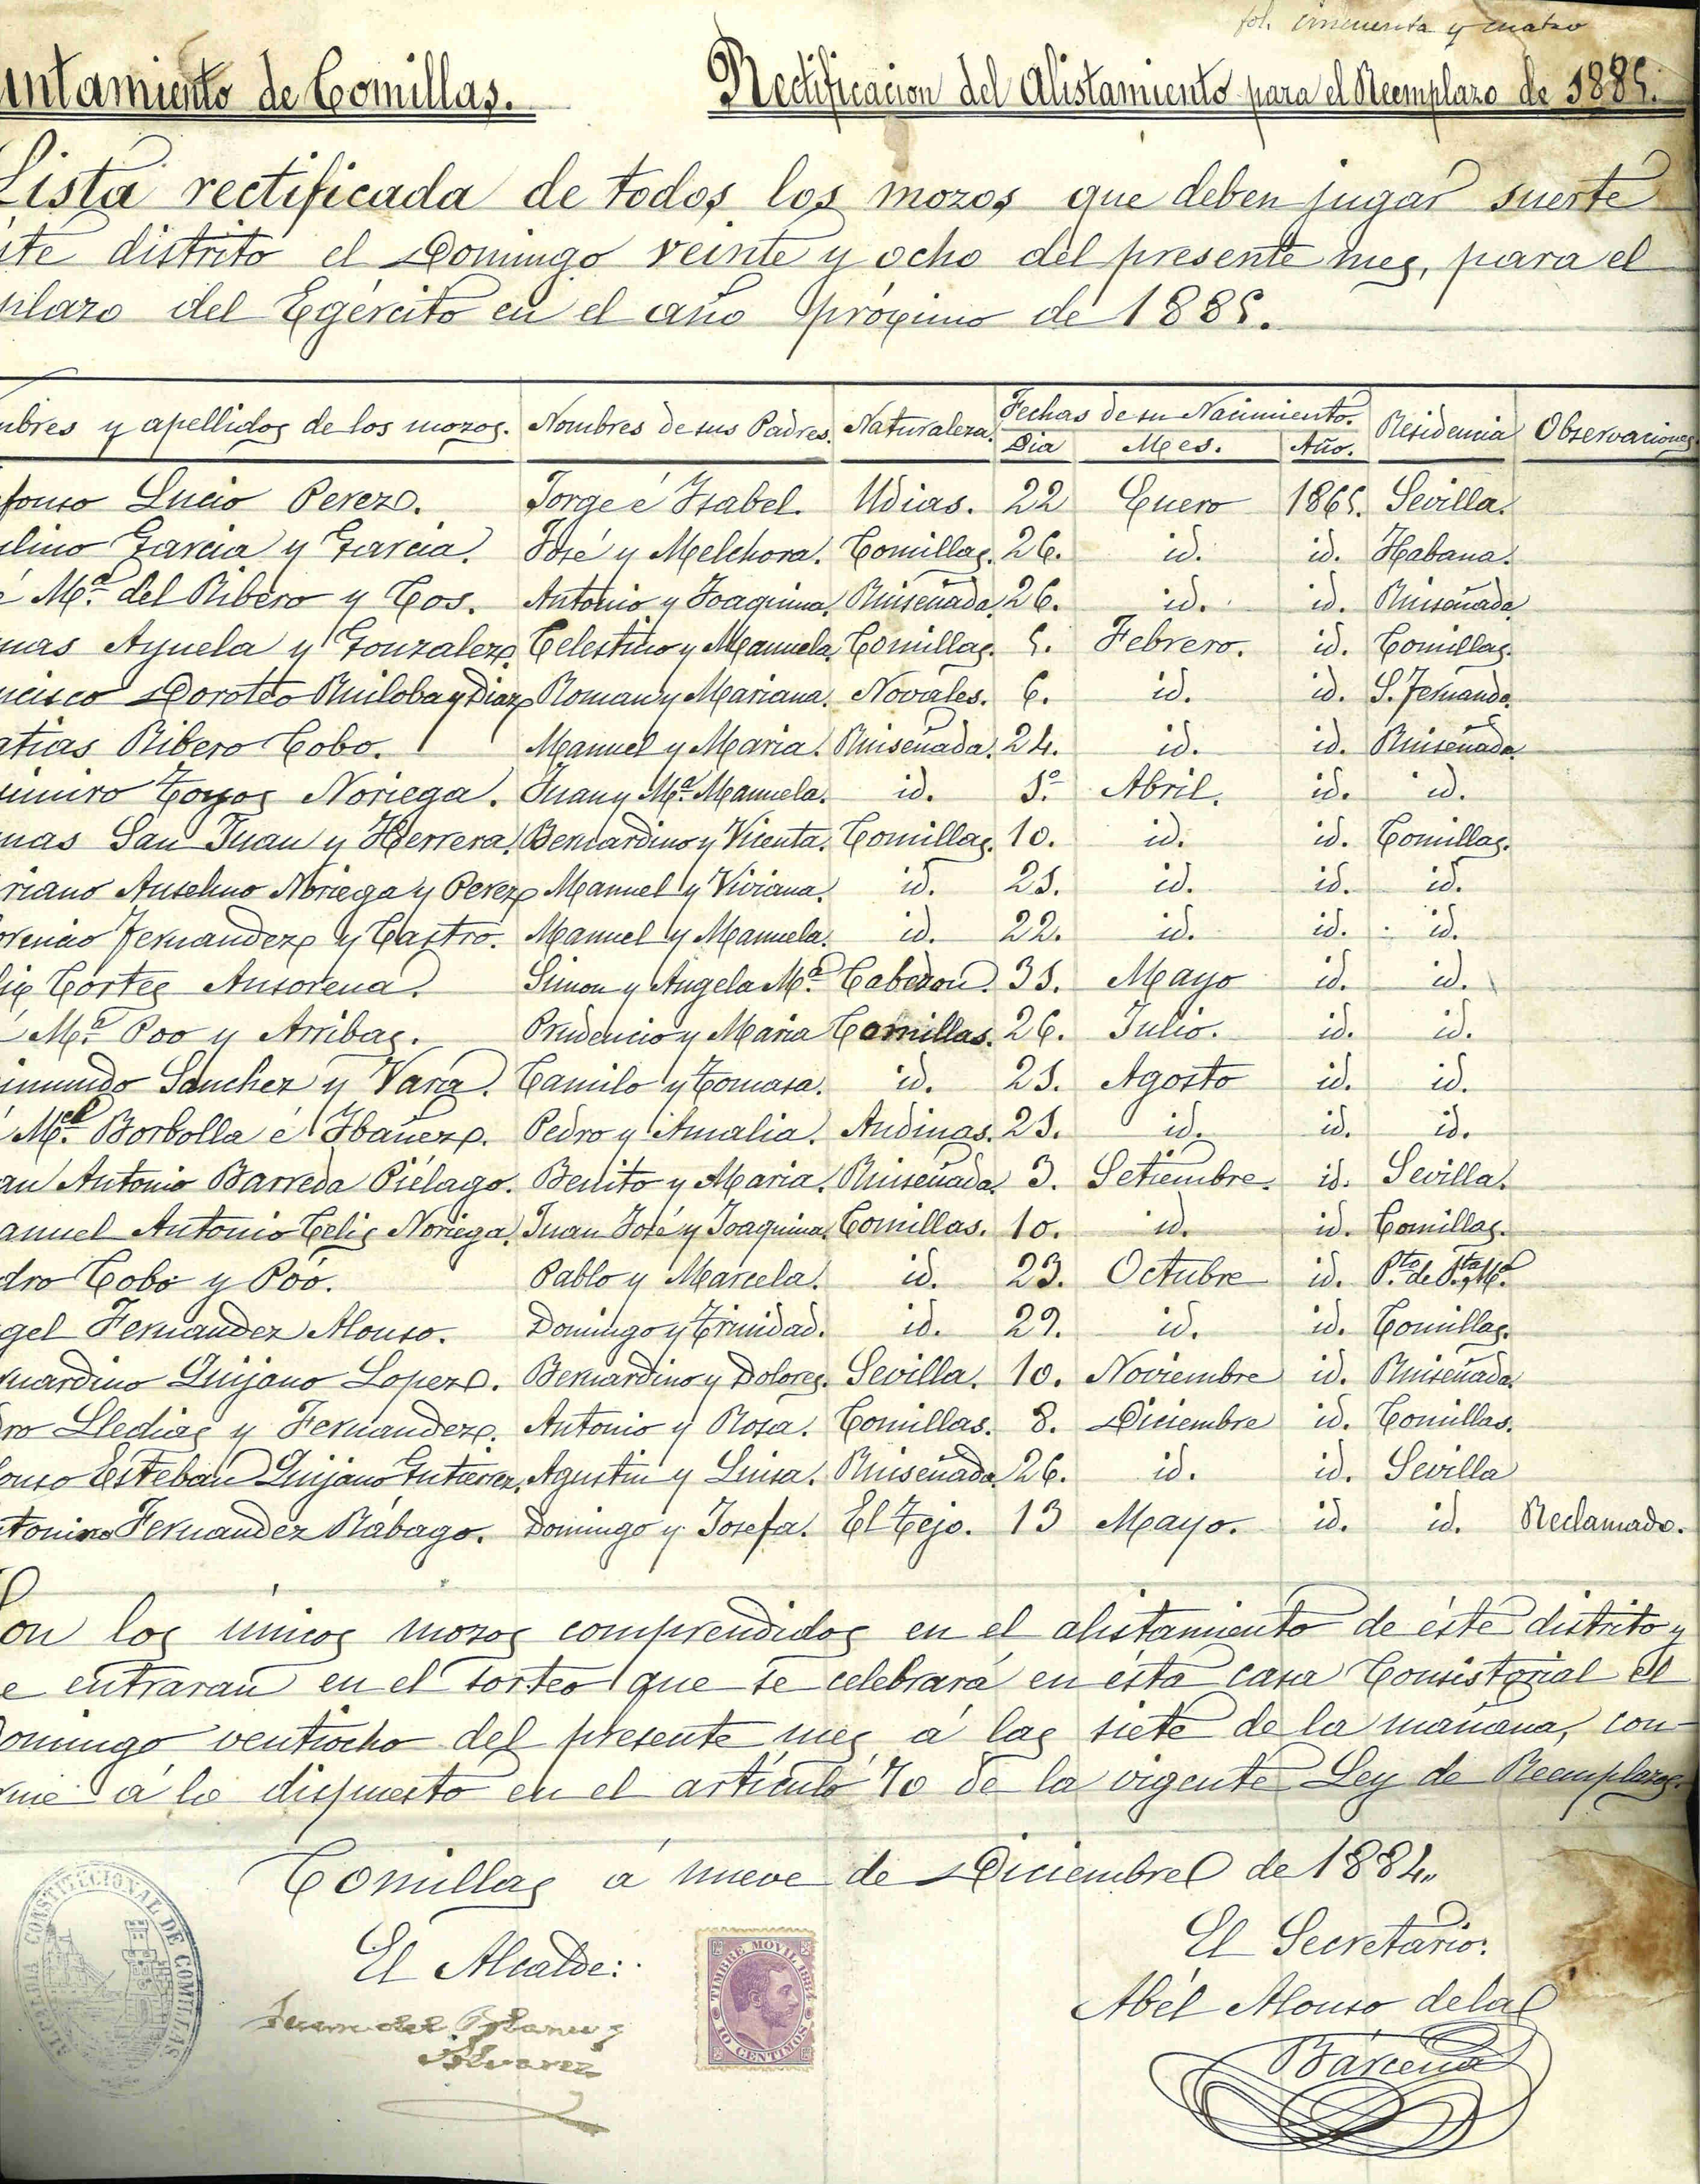 fol. cincuenta y cuatro
untamiento de Comillas. Rectificacion del Alistamiento para el Reemplazo de 1885.
Lista rectificada de todos los mozos que deben jugar suerte
ste distrito el Domingo veinte y ocho del presente mes, para el
plazo del Egército en el año próximo de 1885.
mbres y apellidos de los mozos. Nombres de sus Padres. Naturaleza. Fechas de su Nacimiento. Residencia Observaciones
Dia Mes. Año.
fonso Lucio Perez. Jorge é Isabel. Udias. 22 Enero 1865. Sevilla.
elino Garcia y Garcia. José y Melchora. Comillas. 26. id. id. Habana.
é Mª del Ribero y Cos. Antonio y Joaquina. Ruiseñada 26. id. id. Ruiseñada
mas Ayuela y Gonzalez Celestino y Manuela. Comillas. 5. Febrero. id. Comillas.
ncisco Doroteo Ruiloba y Diaz Roman y Mariana. Novales. 6. id. id. S. Fernando.
atias Ribero Cobo. Manuel y Maria. Ruiseñada. 24. id. id. Ruiseñada
simiro Toyos Noriega. Juan y Mª Manuela. id. 1º Abril. id. id.
mas San Juan y Herrera. Bernardino y Vicenta. Comillas. 10. id. id. Comillas.
riano Anselmo Noriega y Perez Manuel y Viviana. id. 21. id. id. id.
orencio Fernandez y Castro. Manuel y Manuela. id. 22. id. id. id.
lix Cortes Ansorena. Simon y Angela Mª Cabezon. 31. Mayo id. id.
é Mª Poo y Arribas. Prudencio y Maria Comillas. 26. Julio. id. id.
imundo Sanchez y Vara. Camilo y Tomasa. id. 21. Agosto id. id.
é Mel Borbolla é Ibañez. Pedro y Amalia. Andinas. 21. id. id. id.
an Antonio Barreda Piélago. Benito y Maria. Ruiseñada. 3. Setiembre. id. Sevilla.
anuel Antonio Celis Noriega. Juan José y Joaquina. Comillas. 10. id. id. Comillas.
dro Cobo y Póo. Pablo y Marcela. id. 23. Octubre id. Pto de Sta Mª
gel Fernandez Alonso. Domingo y Trinidad. id. 29. id. id. Comillas.
rnardino Quijano Lopez. Bernardino y Dolores. Sevilla. 10. Noviembre id. Ruiseñada.
ro Lledias y Fernandez. Antonio y Rosa. Comillas. 8. Diciembre id. Comillas.
fonso Esteban Quijano Gutierrez. Agustin y Luisa. Ruiseñada 26. id. id. Sevilla
tonino Fernandez Rábago. Domingo y Josefa. El Tejo. 13 Mayo. id. id. Reclamado.
Son los únicos mozos comprendidos en el alistamiento de éste distrito y
e entraran en el sorteo que se celebrará en ésta casa Consistorial el
Domingo ventiocho del presente mes á las siete de la mañana, con-
rme á lo dispuesto en el artículo 70 de la vigente Ley de Reemplazos.
Comillas á nueve de Diciembre de 1884.
El Alcalde: El Secretario:
Juan del
Alvarez
Abél Alonso de la
Bárcena
ALCALDIA CONSTITUCIONAL DE COMILLAS
TIMBRE MOVIL 1884
10 CENTIMOS